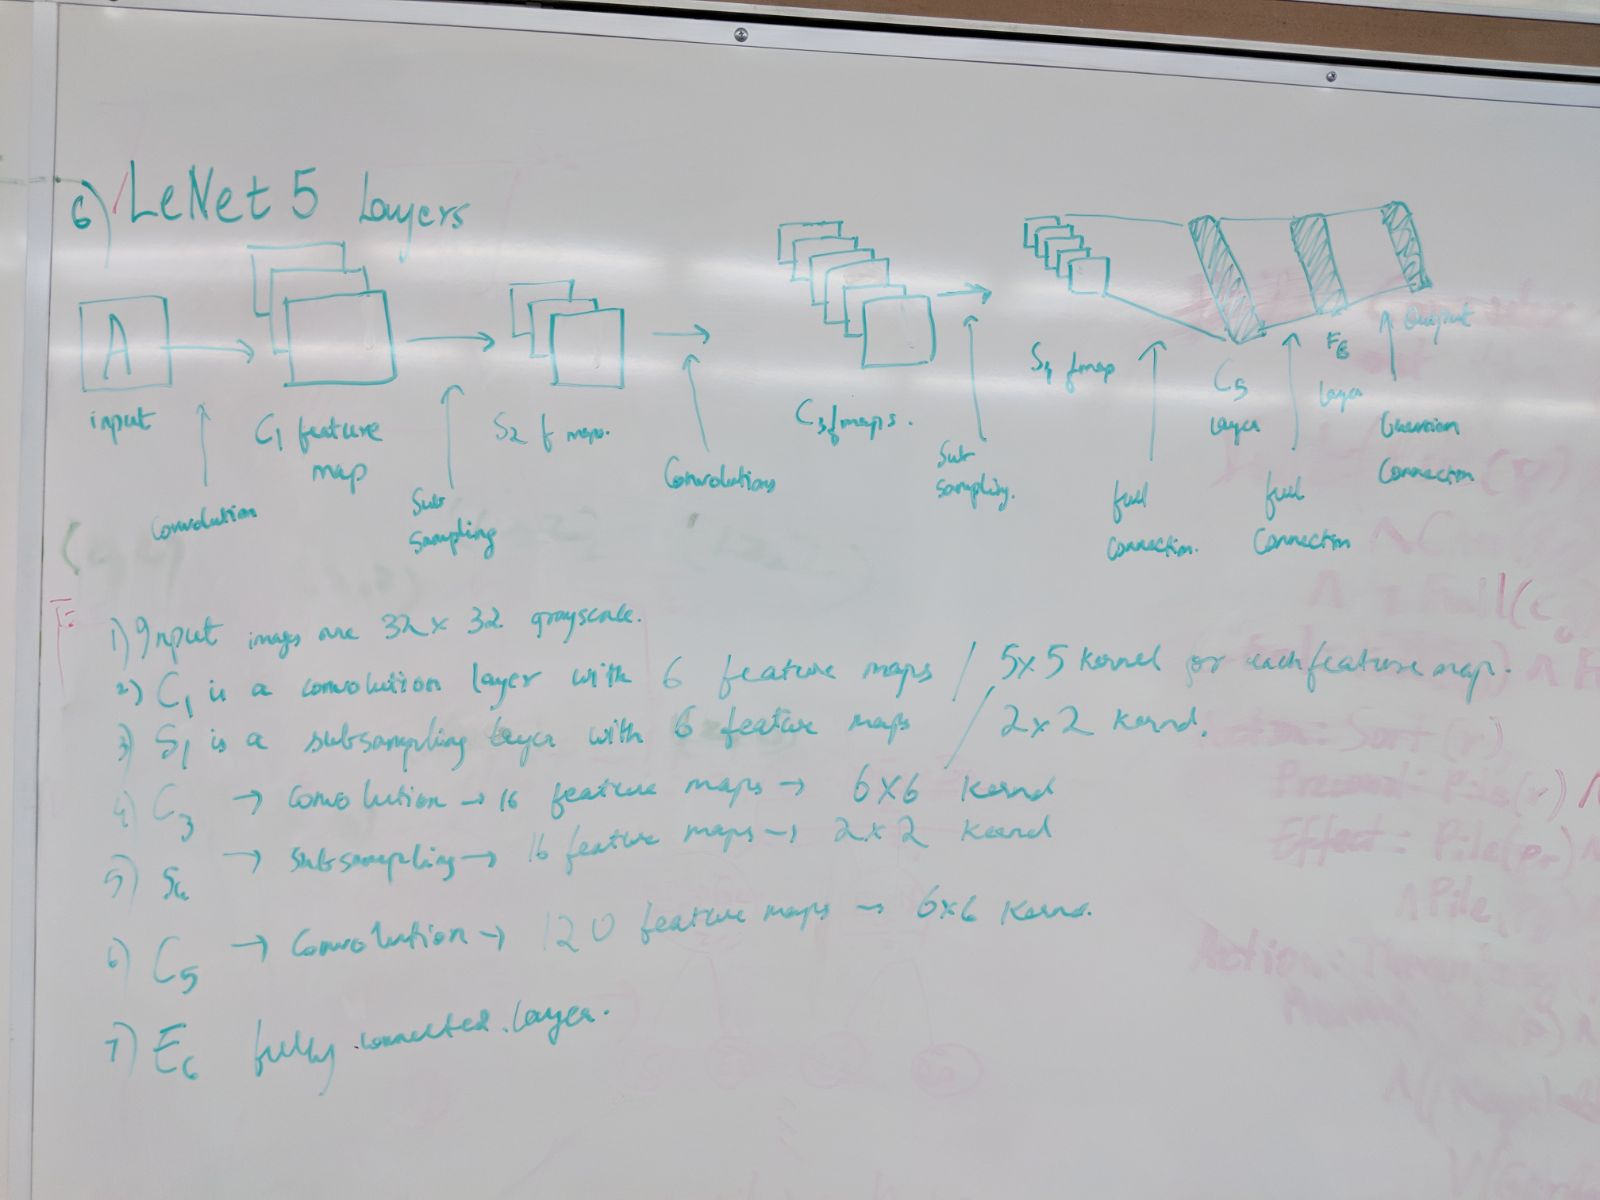 6) LeNet 5 Layers
A
input
Convolution
C1 feature
map
Sub
Sampling
S2 f maps.
Convolutions
C3 f maps.
Sub
Sampling.
S4 f map
full
Connection.
C5
layer
full
Connection
F6
layer
Output
Gaussian
Connection
1) Input images are 32 x 32 grayscale.
2) C1 is a convolution layer with 6 feature maps / 5x5 kernel for each feature map.
3) S1 is a subsampling layer with 6 feature maps / 2x2 kernel.
4) C3 → Convolution → 16 feature maps → 6x6 kernel
5) S4 → Subsampling → 16 feature maps → 2x2 kernel
6) C5 → Convolution → 120 feature maps → 6x6 kernel.
7) F6 fully connected layer.
Sort(r)
Precond: Pile(r) ∧
Effect: Pile(pr) ∧
∧ Pile
Action: